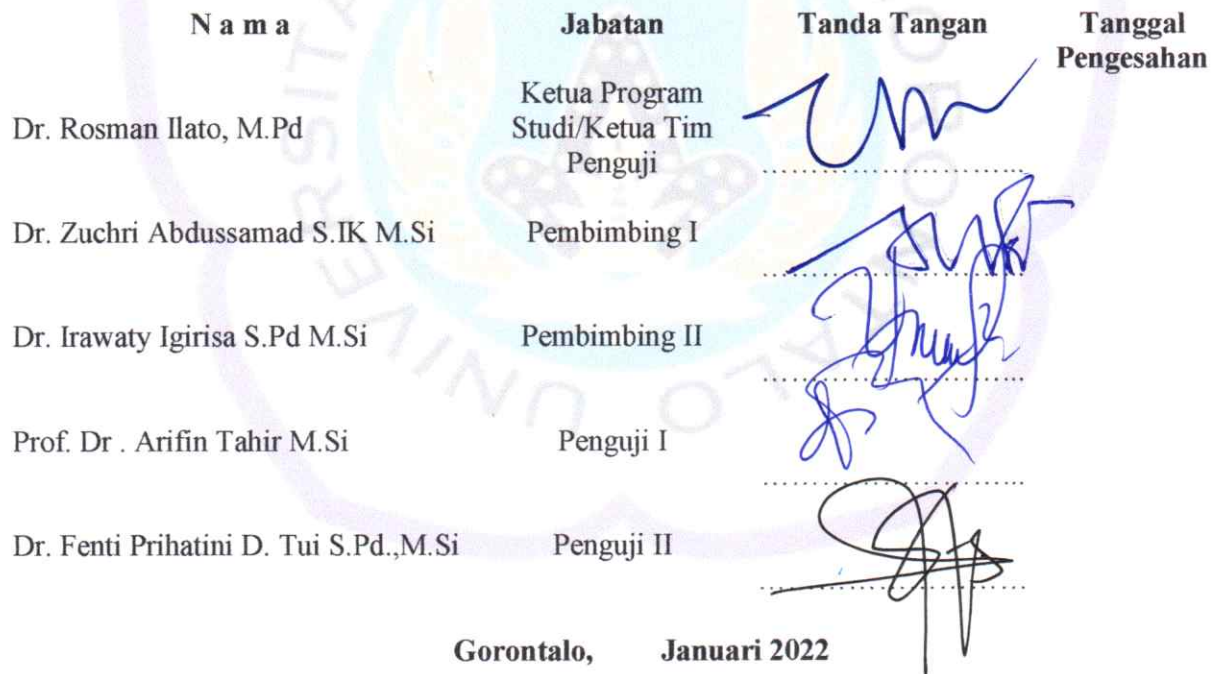 N a m a Jabatan Tanda Tangan Tanggal
Pengesahan
Ketua Program
Dr. Rosman Ilato, M.Pd Studi/Ketua Tim
Penguji
Dr. Zuchri Abdussamad S.IK M.Si Pembimbing I
Dr. Irawaty Igirisa S.Pd M.Si Pembimbing II
Prof. Dr . Arifin Tahir M.Si Penguji I
Dr. Fenti Prihatini D. Tui S.Pd.,M.Si Penguji II
Gorontalo, Januari 2022